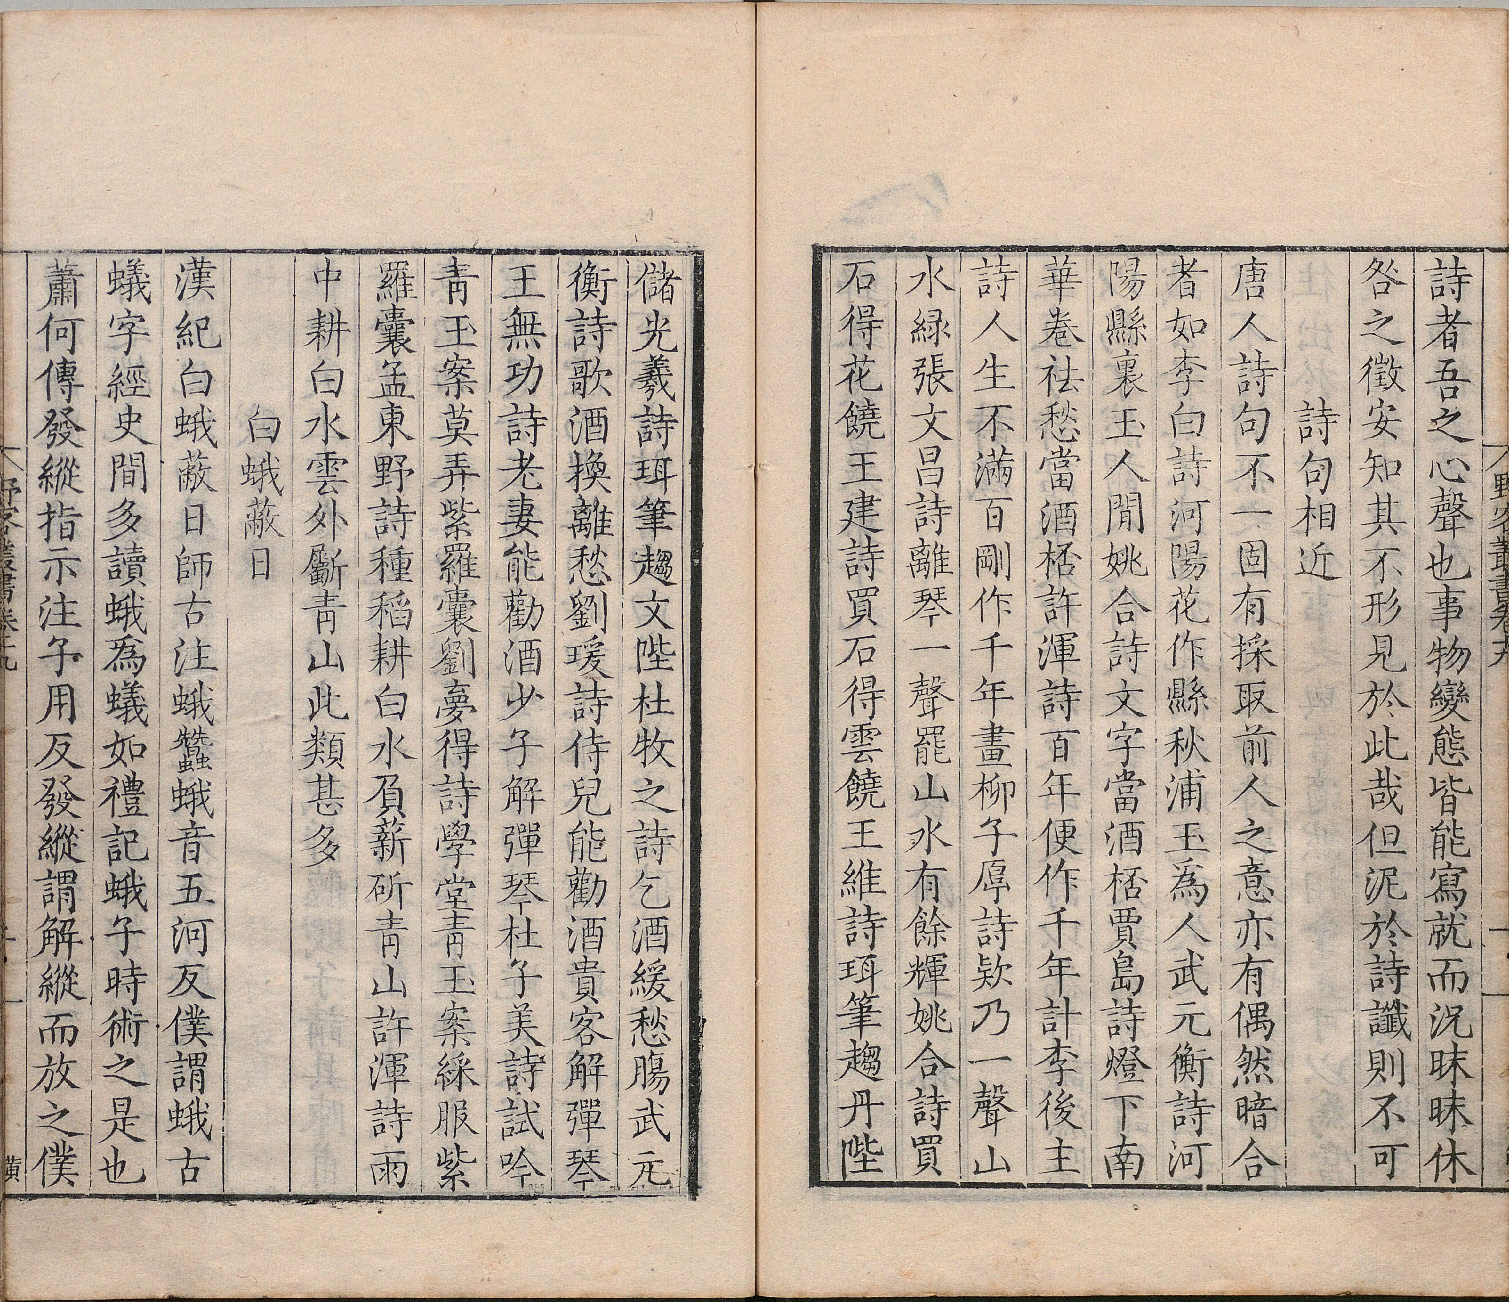 詩者吾之心聲也事物變態皆能寫就而況昧昧休
咎之徵安知其不形見於此哉但泥於詩讖則不可
詩句相近
唐人詩句不一固有採取前人之意亦有偶然暗合
者如李白詩河陽花作縣秋浦玉為人武元衡詩河
陽縣裏玉人閒姚合詩文字當酒桮賈島詩燈下南
華卷袪愁當酒桮許渾詩百年便作千年計李後主
詩人生不滿百剛作千年畫柳子厚詩欵乃一聲山
水緑張文昌詩離琴一聲罷山水有餘輝姚合詩買
石得花饒王建詩買石得雲饒王維詩珥筆趨丹陛
儲光羲詩珥筆趨文陛杜牧之詩乞酒緩愁膓武元
衡詩歌酒換離愁劉瑗詩侍兒能勸酒貴客解彈琴
王無功詩老妻能勸酒少子解彈琴杜子美詩試吟
青玉案莫弄紫羅囊劉夢得詩學堂青玉案綵服紫
羅囊孟東野詩種稻耕白水負薪斫青山許渾詩雨
中耕白水雲外斸青山此類甚多
白蛾蔽日
漢紀白蛾蔽日師古注蛾蠶蛾音五河反僕謂蛾古
蟻字經史間多讀蛾為蟻如禮記蛾子時術之是也
蕭何傳發縱指示注子用反發縱謂解縱而放之僕
野客叢書卷十九